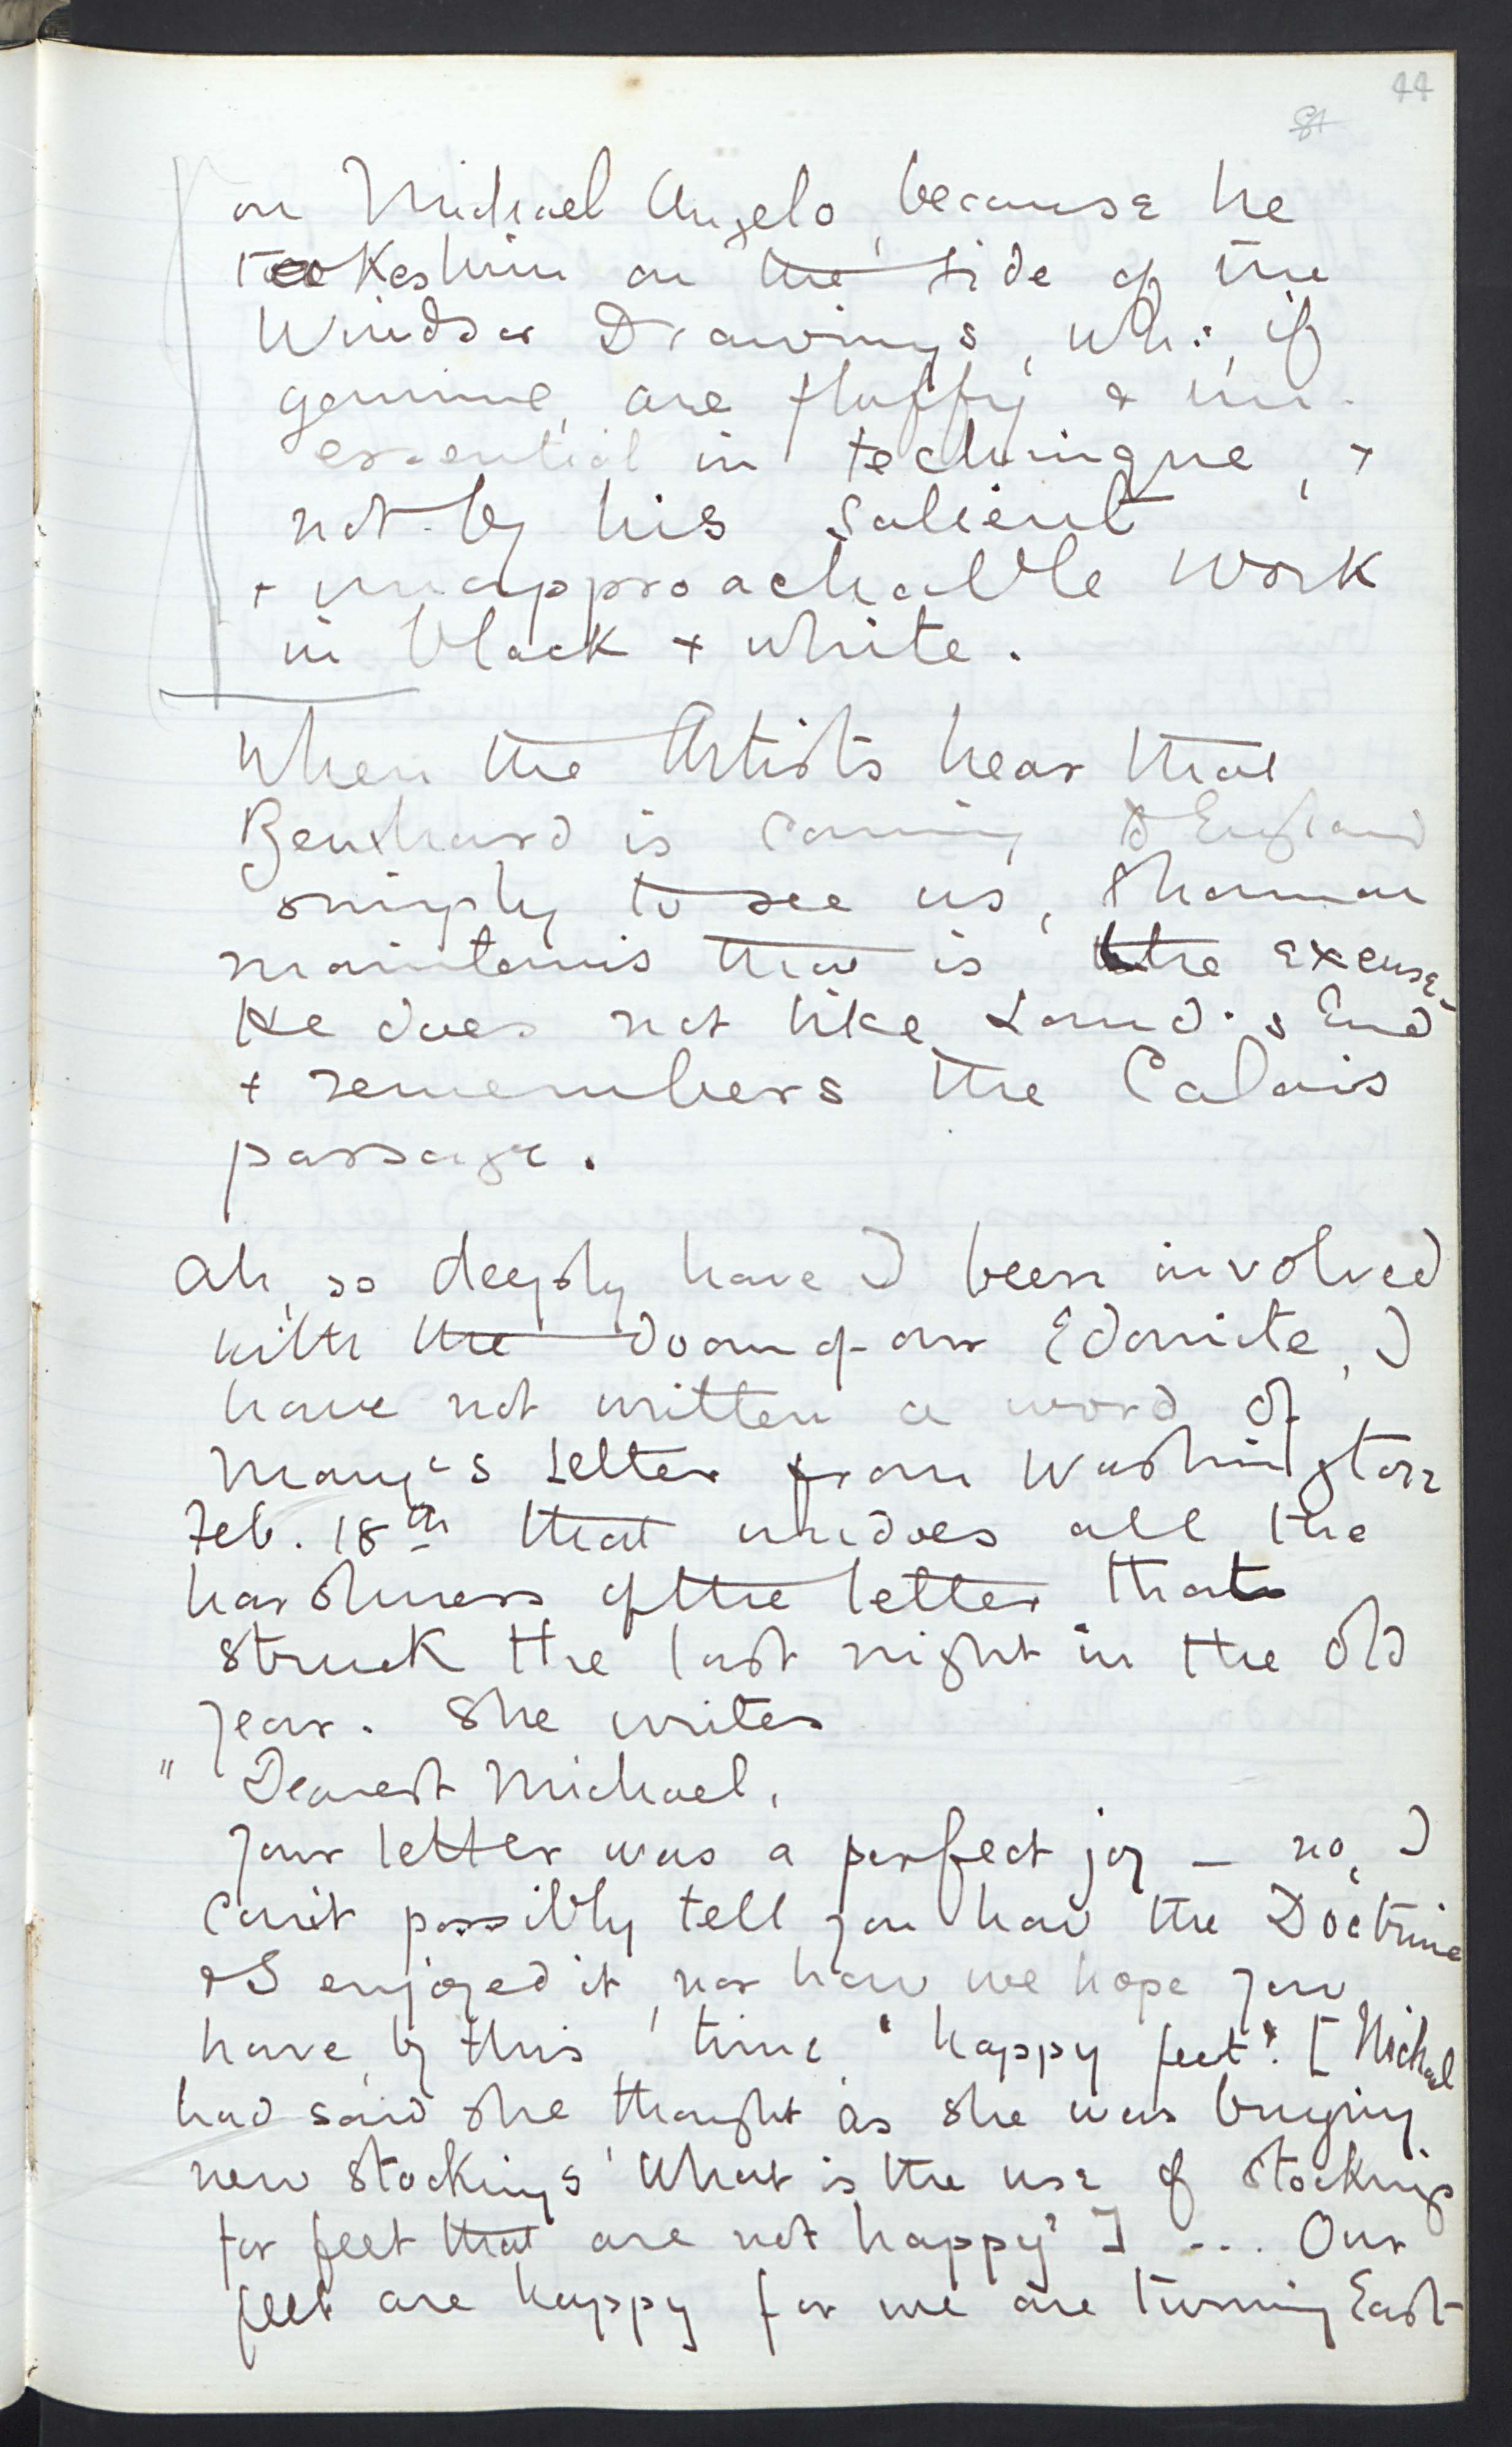 44
on Michael Angelo, because he
takes him on the side of the
Windsor Drawings, wh:, if
genuine, are fluffy & un-
essential in technique, +
not by his salient
+ unapproachable work
in black + white.
When the Artists hear that
Bernhard is coming to England
simply to see us, Shannon
maintains that is the excuse.
He does not like Land's End
+ remembers the Calais
passage.
Ah, so deeply have I been involved
with the doom of our Edomite, I
have not written a word of
Mary's letter from Washington
Feb. 18th that undoes all the
harshness of the letter that
struck the last night in the Old
year. She writes
" Dearest Michael,
Your letter was a perfect joy — no, I
can't possibly tell you how the Doctrine
& I enjoyed it, nor how we hope you
have by this time 'happy feet'. [Michael
had said she thought as she was buying
new stockings 'What is the use of stockings
for feet that are not happy'] ... Our
feet are happy for we are turning East